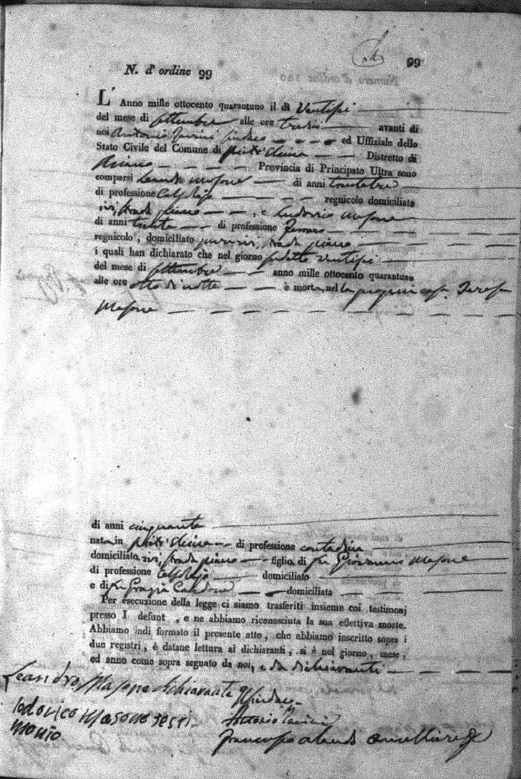 99
N. d'ordine 99
L'Anno mille ottocento quarantuno il dì Ventisei
del mese di Settembre alle ore tredici avanti di
noi Antonio Sindaco ed Uffiziale dello
Stato Civile del Comune di Distretto di
Provincia di Principato Ultra sono
comparsi Leandro Masone di anni trentatre
di professione regnicolo domiciliato
ivi, strada piano, e Ludovico Masone
di anni trenta di professione Ferraro
regnicolo, domiciliato pure ivi, strada piano
i quali han dichiarato che nel giorno sudetto ventisei
del mese di Settembre anno mille ottocento quarantuno
alle ore otto di notte è morta nel la propria casa Teresa
Masone
di anni cinquanta
nata in di professione contadina
domiciliata ivi, strada piano figlia di fu Giovanni Masone
di professione domiciliato
e di fu Grazia domiciliata
Per esecuzione della legge ci siamo trasferiti insieme coi testimoj
presso l defunt, e ne abbiamo riconosciuta la sua effettiva morte.
Abbiamo indi formato il presente atto, che abbiamo inscritto sopra i
due registri, è datane lettura ai dichiaranti, si è nel giorno, mese,
ed anno come sopra segnato da noi, e da dichiaranti
Leandro Masone dichiarante Il Sindaco
lodovico Masone testi Antonio
monio Cancelliere